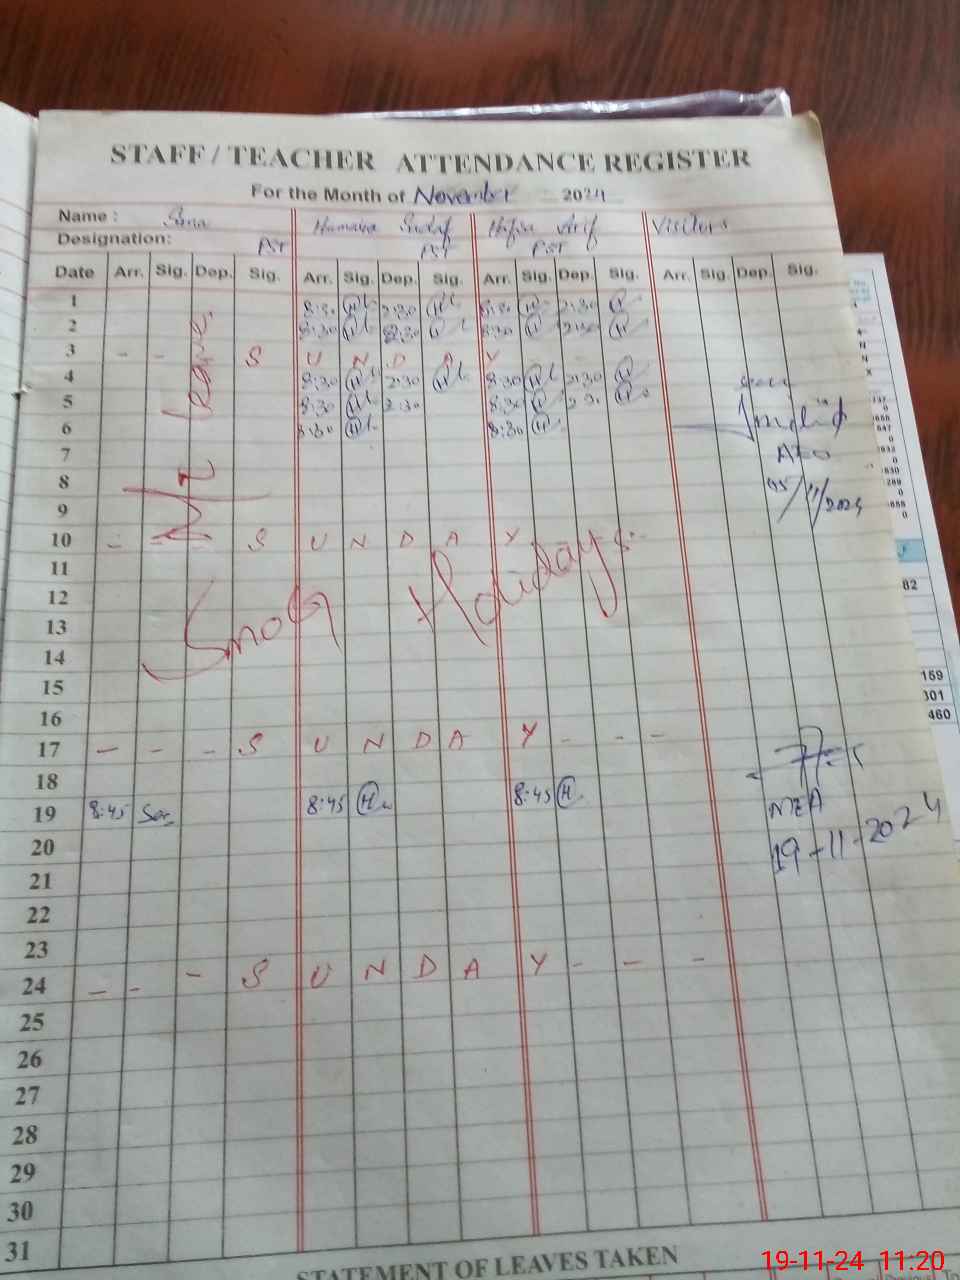 STAFF / TEACHER ATTENDANCE REGISTER
For the Month of November 2024
Name : Humaira Sadaf Hafsa Arif Visitors
Designation: PST PST PST
Date Arr. Sig. Dep. Sig. Arr. Sig. Dep. Sig. Arr. Sig. Dep. Sig. Arr. Sig. Dep. Sig.
1 8:30 H 2:30 H 8:30 H 2:30 H
2 8:30 H 2:30 H 8:30 H 2:30 H
3 - - S U N D A Y - -
4 8:30 H 2:30 H 8:30 H 2:30 H
5 8:30 H 2:30 8:30 H 2:30 H
6 8:30 H 8:30 H
Mt Leave.
AEO
7
8
/11/2024
9
10 - - S U N D A Y
11
12
Smog Holidays.
13
14
15
16
17 - - - S U N D A Y - - -
18
19 8:45 8:45 H 8:45 H
MEA
19-11-2024
20
21
22
23
24 - - - S U N D A Y - - -
25
26
27
28
29
30
31
STATEMENT OF LEAVES TAKEN
82
159
301
460
19-11-24 11:20